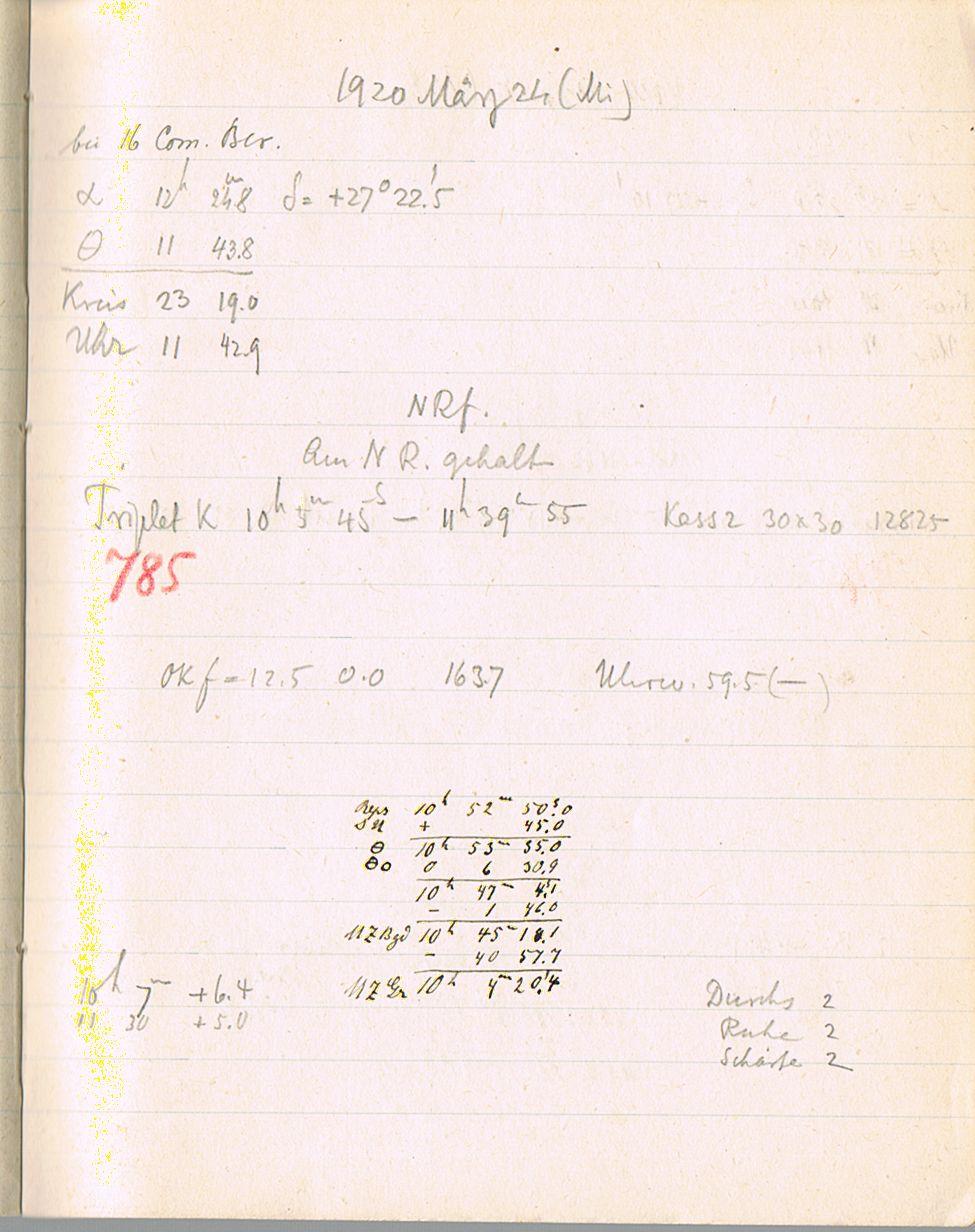 1920 März 24 (Mi)
bei 16 Com. Ber.
α 12h 24.8m δ = +27° 22.'5
θ 11 43.8
Kreis 23 19.0
Uhr 11 42.9
NRf.
Am N R. gehalt
Triplet K 10h 5m 45s – 11h 39m 55 Kass 2 30x30 12825
785
OK f = 12.5 0.0 163.7 Uhrw. 59.5 (—)
10h 52m 50s.0
+ 45.0
θ 10h 53m 35.0
θ0 0 6 30.9
10h 47m 4s.1
– 1 46.0
MZ Bgd 10h 45m 18.1
– 40 57.7
MZ Gr 10h 4m 20s.4
10h 7m +6.4
11 30 +5.0
Durchs 2
Ruhe 2
Schärfe 2